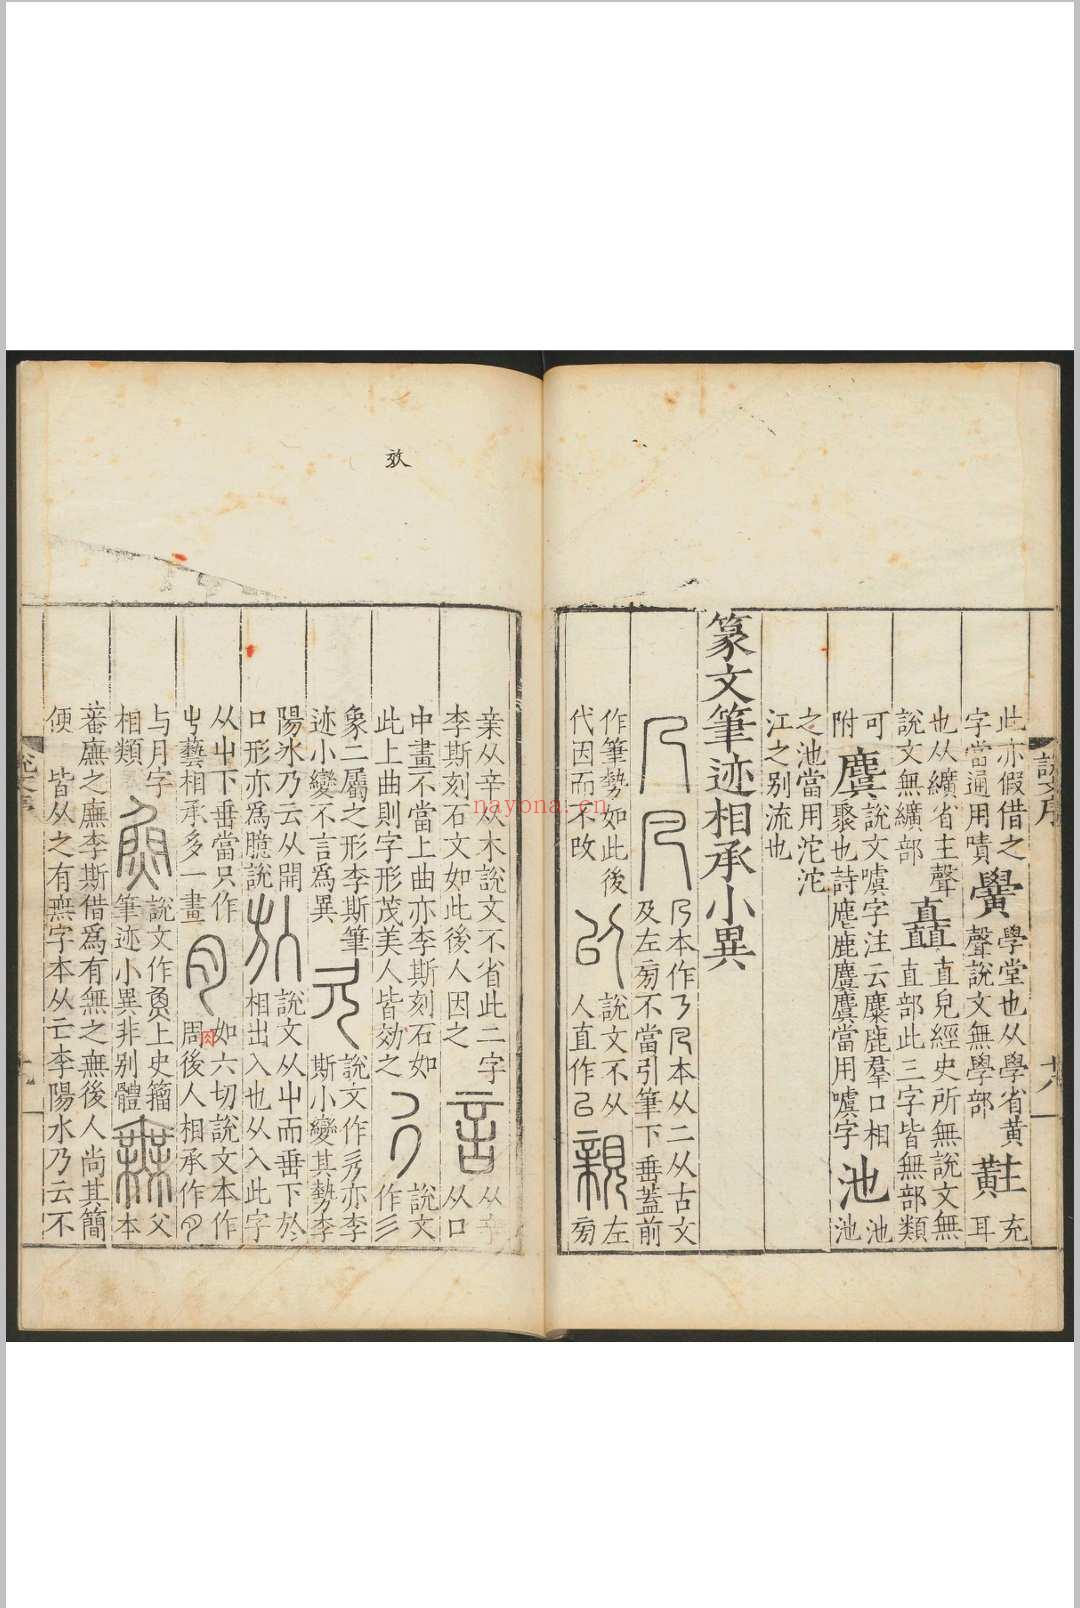 此亦假借之
字當通用嘖
黌
學堂也从學省黄
聲說文無學部
黈
充
耳
也从纊省主聲
說文無纊部
矗
直皃經史所無說文無
直部此三字皆無部類
可
附
麌
說文噳字注云麋鹿羣口相
聚也詩麀鹿麌麌當用噳字
池
池
池
之池當用沱沱
江之别流也
篆文筆迹相承小異
本作
本从二从古文
及左㫄不當引筆下垂蓋前
作筆勢如此後
代因而不改
說文不从
人直作
親
左
㫄
亲从辛从木說文不省此二字
李斯刻石文如此後人因之
言
从辛
从口
中畫不當上曲亦李斯刻石如
此上曲則字形茂美人皆効之
說文
作彡
象二屬之形李斯筆
迹小變不言爲異
說文作亦李
斯小變其勢李
陽冰乃云从開
口形亦爲臆說
說文从屮而垂下於
相出入也从入此字
从屮下垂當只作
屮蓺相承多一畫
如六切說文本作
肉
周後人相承作
与月字
相類
說文作上史籀
筆迹小異非别體
無
父
本
蕃廡之廡李斯借爲有無之無後人尚其簡
便
皆从之有無字本从亡李陽冰乃云不
說文序
十八
放
nayona.cn